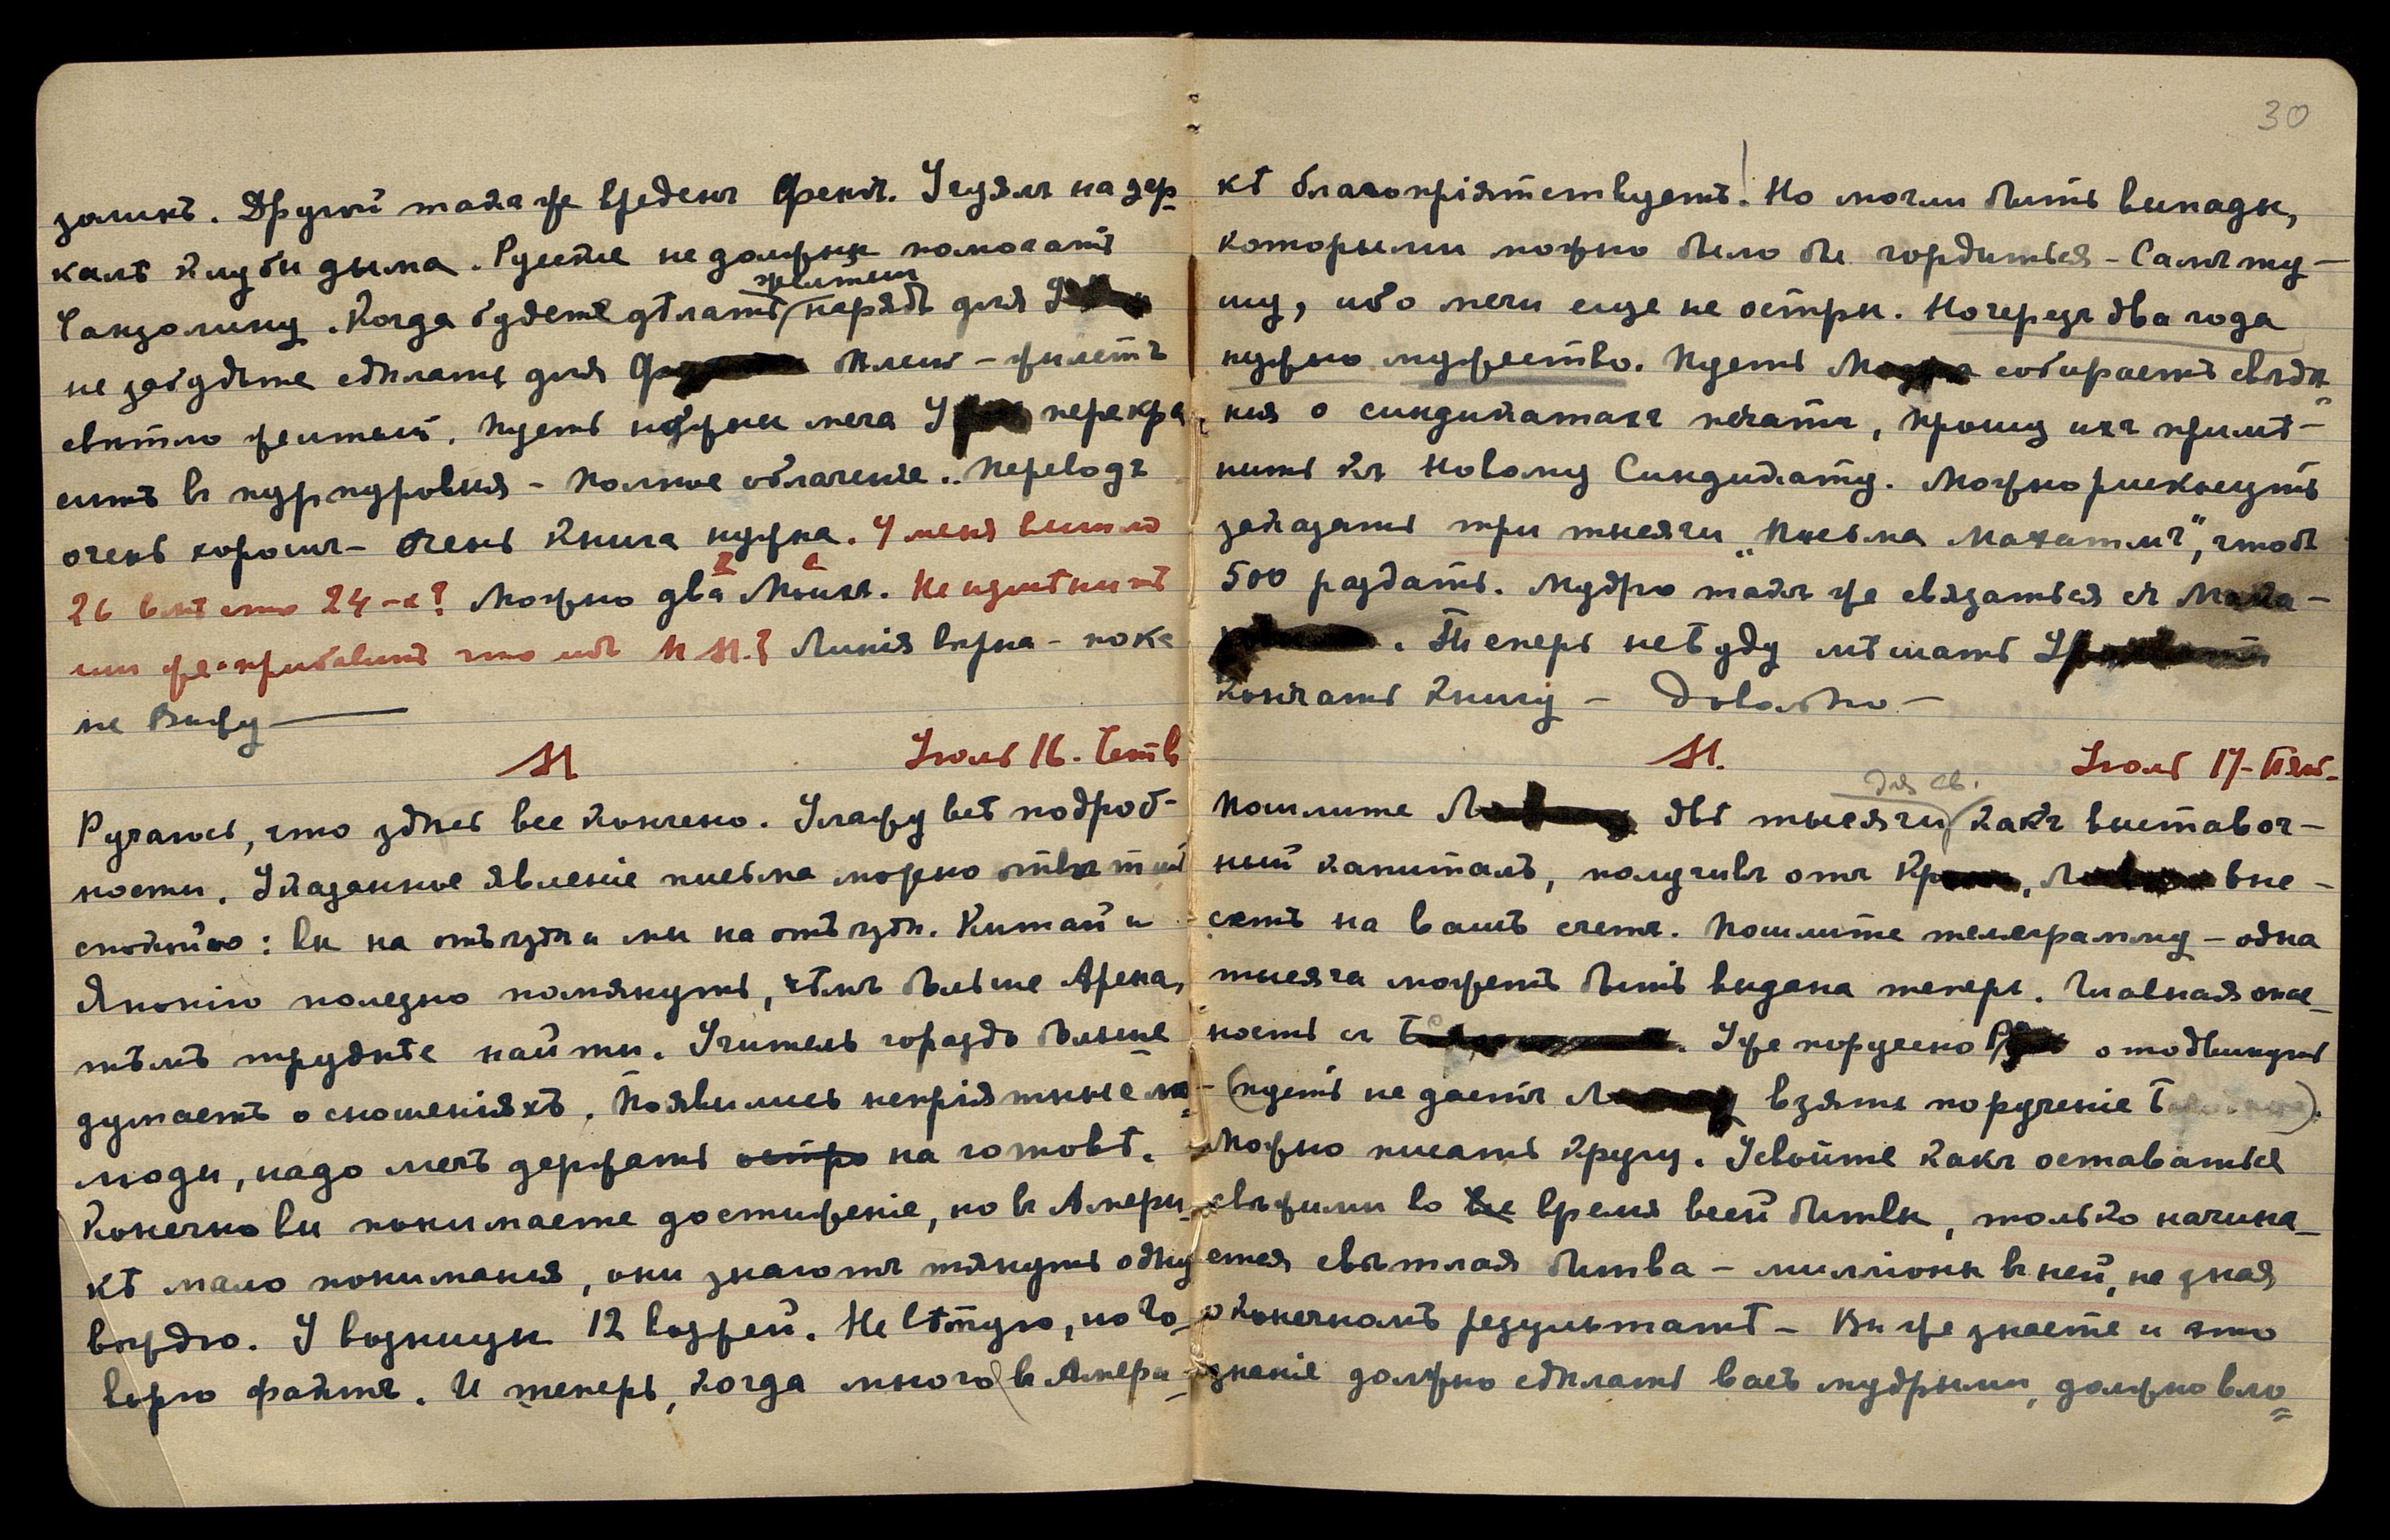 заликъ. Другой также вреденъ Френкъ. Угудяя на зер-
калъ клубы дыма. Русскіе не должны помогать
Санзолину. Когда будете дѣлать желтый нарядъ для
не забудьте сдѣлать для Плеи - жилетъ
свѣтло желтый. Пусть ножны меча перекра-
ситъ въ пурпуровыя - полное облаченіе.. Переводъ
очень хорошъ - очень книга нужна. У меня вышло
26 вмѣсто 24-х? Можно два. Не измѣнитъ
ли же прибавитъ что либо М М.? Линія вѣрна - пока
не вижу
М Іюль 16. Четв
Ручаюсь, что здѣсь все кончено. Улажу всѣ подроб-
ности. Указанное явленіе письма можно отвѣтить
спокойно: вы на отъѣздѣ и мы на отъѣздѣ. Китай и
Японію полезно помянуть, чѣмъ больше Арена,
тѣмъ труднѣе найти. Учитель гораздо больше
думаетъ о сношеніяхъ. Появились непріятные
люди, надо мечъ держать остро на готовѣ.
Конечно вы понимаете достиженіе, но въ Амери-
кѣ мало пониманія, они знаютъ тянуть одну
вожжю. У возницы 12 вожжей. Не сѣтую, но го-
ворю фактъ. И теперь, когда много въ Амери-
30
кѣ благопріятствуетъ! Но могли быть выпады,
которыми можно было бы гордиться - Самъ ту-
шу, ибо мечи еще не остры. Но черезъ два года
нужно мужество. Пусть собираетъ свѣдѣ-
нія о синдикатахъ печати, прошу ихъ примѣ-
нить къ Новому Синдикату. Можно рискнуть
заказать три тысячи „Письма Махатмъ", чтобъ
500 раздать. Мудро также связаться съ
. Теперь не буду мѣшать
кончать книгу - Довольно -
М. Іюль 17- Пят.
Пошлите двѣ тысячи для св. какъ выставоч-
ный капиталъ, получивъ отъ Кр , вне-
сетъ на вашъ счетъ. Пошлите телеграмму - одна
тысяча можетъ быть выдана теперь. Главная опас-
ность съ . Уже поручено отодвинуть
(пусть не даетъ взять порученіе Т ).
Можно писать Кругу. Усвойте какъ оставаться
свѣжими во все время всей битвы, только начина-
ется свѣтлая битва - милліоны въ ней, не зная
о конечномъ результатѣ - Вы же знаете и это
знаніе должно сдѣлать васъ мудрыми, должно вло-